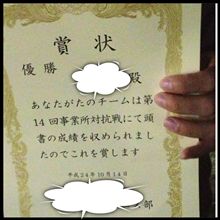 賞状
優勝
殿
あなたがたのチームは第
14回事業所対抗戦にて頭
書の成績を収められまし
たのでこれを賞します
平成24年10月14日
部